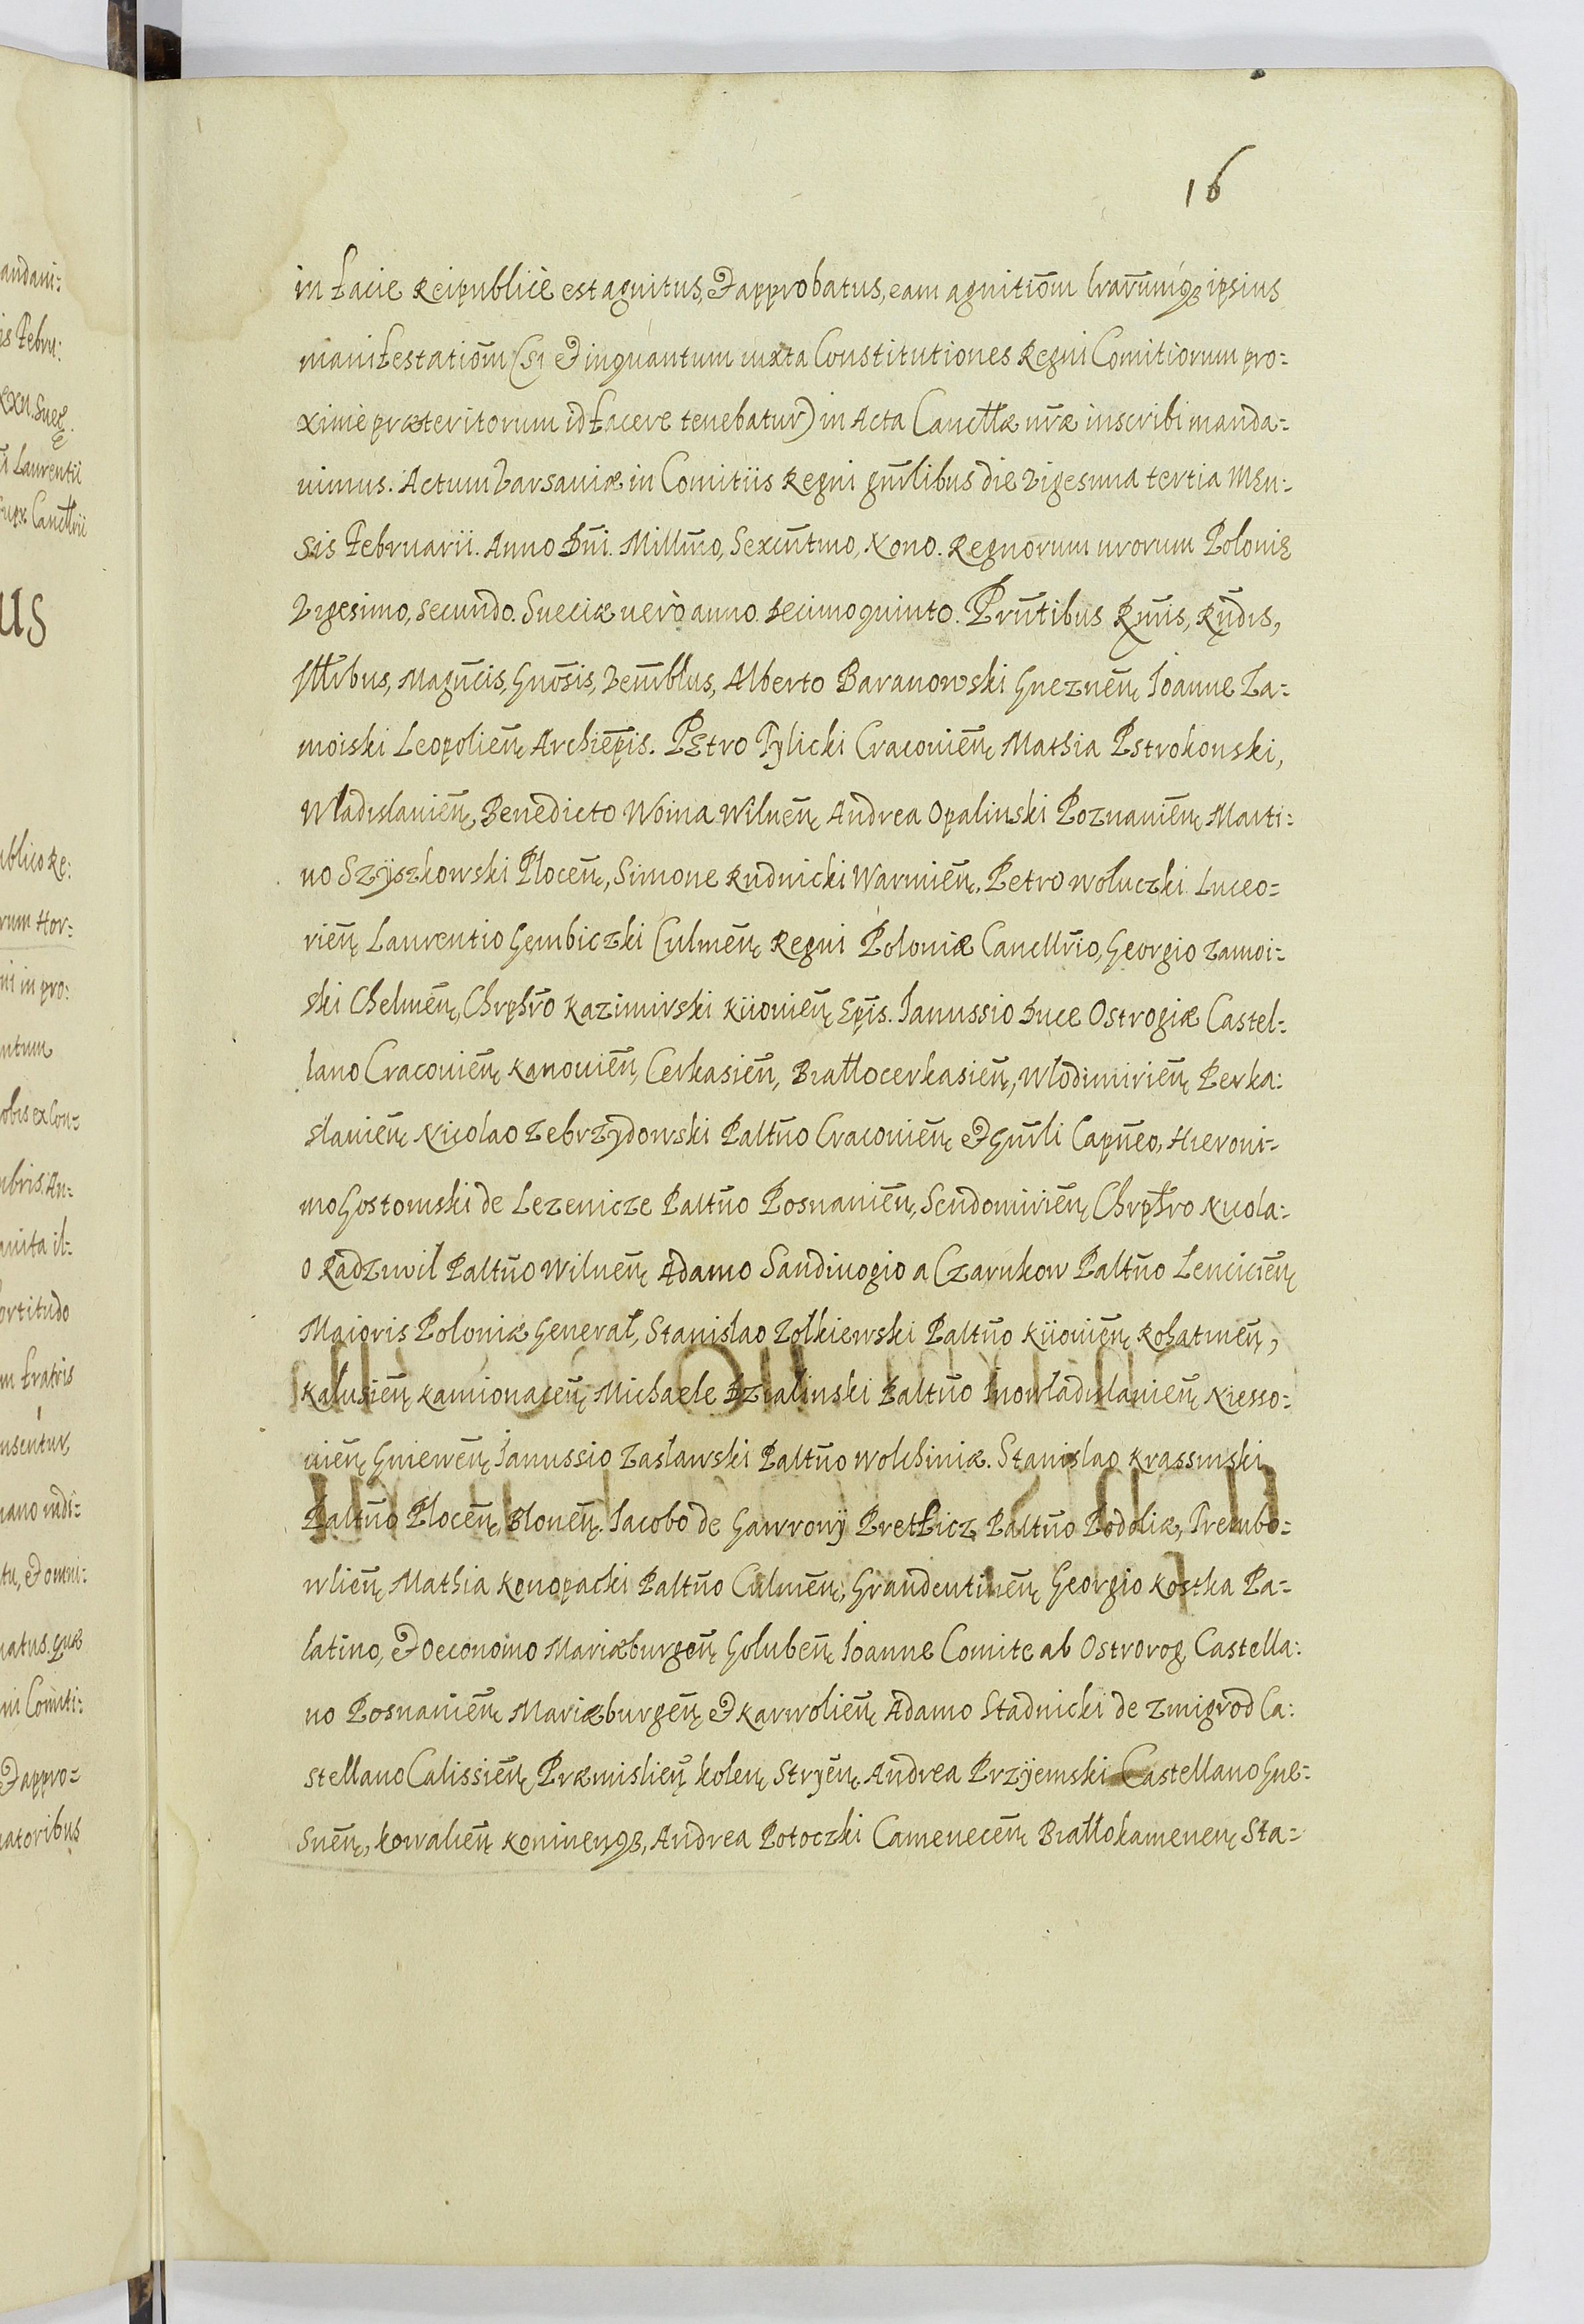 16
in facie Reipublicè est agnitus, & approbatus, eam agnitiōm lrārumq́ꝫ ipsius
manifestatiōm (si & inquantum iuxta Constitutiones Regni Comitiorum pro=
ximè præteritorum id facere tenebatur) in Acta Canctłæ nr̄æ inscribi manda=
uimus. Actum Varsauiæ in Comitiis Regni gnr̄libus die Vigesima tertia Men=
sis Februarii. Anno Dn̄i. Millm̄o, Sexcn̄tmo, Nono. Regnorum nrorum Polonię
Vigesimo, secundo. Sueciæ uerò anno Decimoquinto. Prn̄tibus Rm̄is, Rn̄dis,
Illr̄ibus, Magn̄cis, Gnōsis, Venr̄blbus, Alberto Baranowski Gneznēn̨ Joanne Za=
moiski Leopoliēn̨ Archiēpis. Petro Tylicki Cracouiēn̨ Mathia Pstrokonski,
Wladislauiēn̨, Benedicto Woina Wilnēn̨ Andrea Opalinski Poznaniēn̨ Marti=
no Szÿszkowski Plocēn̨, Simone Rudnicki Warmiēn̨, Petro Woluczki Luceo=
riēn̨ Laurentio Gembiczki Culmēn̨ Regni Poloniæ Cancllr̄io, Georgio Zamoi=
ski Chelmēn̨, Chrphr̄o Kazimirski Kiiouiēn̨ Epīs. Ianussio Duce Ostrogiæ Castel=
lano Cracouiēn̨ Kanouiēn̨, Cerkasiēn̨, Białłocerkasiēn̨, Wlodimiriēn̨ Perka=
slauiēn̨ Nicolao Zebrzydowski Paltn̄o Cracouiēn̨ & Gnr̄li Capn̄eo, Hieroni=
mo Gostomski de Lezenicze Paltn̄o Posnaniēn̨, Sendomiriēn̨ Chrphr̄o Nicola=
o Radziwil Paltn̄o Wilnēn̨ Adamo Sandiuogio a Czarnkow Paltn̄o Lenciciēn̨
Maioris Poloniæ Generał, Stanislao Zolkiewski Paltn̄o Kiiouiēn̨ Rohatinēn̨,
Kalusiēn̨ Kamionacēn̨ Michaele Dzialinski Paltn̄o Inowladislauiēn̨ Niesso=
uiēn̨ Gniewēn̨ Ianussio Zasławski Paltn̄o Wolhiniæ. Stanislao Krassinski
Paltn̄o Plocēn̨, Blonēn̨. Iacobo de Gawronÿ Pretficz Paltn̄o Podoliæ, Trembo=
wliēn̨, Mathia Konopacki Paltn̄o Culmēn̨, Graudentinēn̨ Georgio Kostka Pa=
latino, & Oeconomo Mariæburgēn̨ Golubēn̨ Joanne Comite ab Ostrorog, Castella=
no Posnaniēn̨ Mariæburgēn̨ & Karwoliēn̨ Adamo Stadnicki de Zmigrod Ca=
stellano Calissiēn̨ Præmisliēn̨ Kolen̨ Stryēn̨ Andrea Przÿemski Castellano Gne=
snēn̨, Kowaliēn̨ Koninenqꝫ, Andrea Potoczki Camenecēn̨ Białłokamenen̨ Sta=